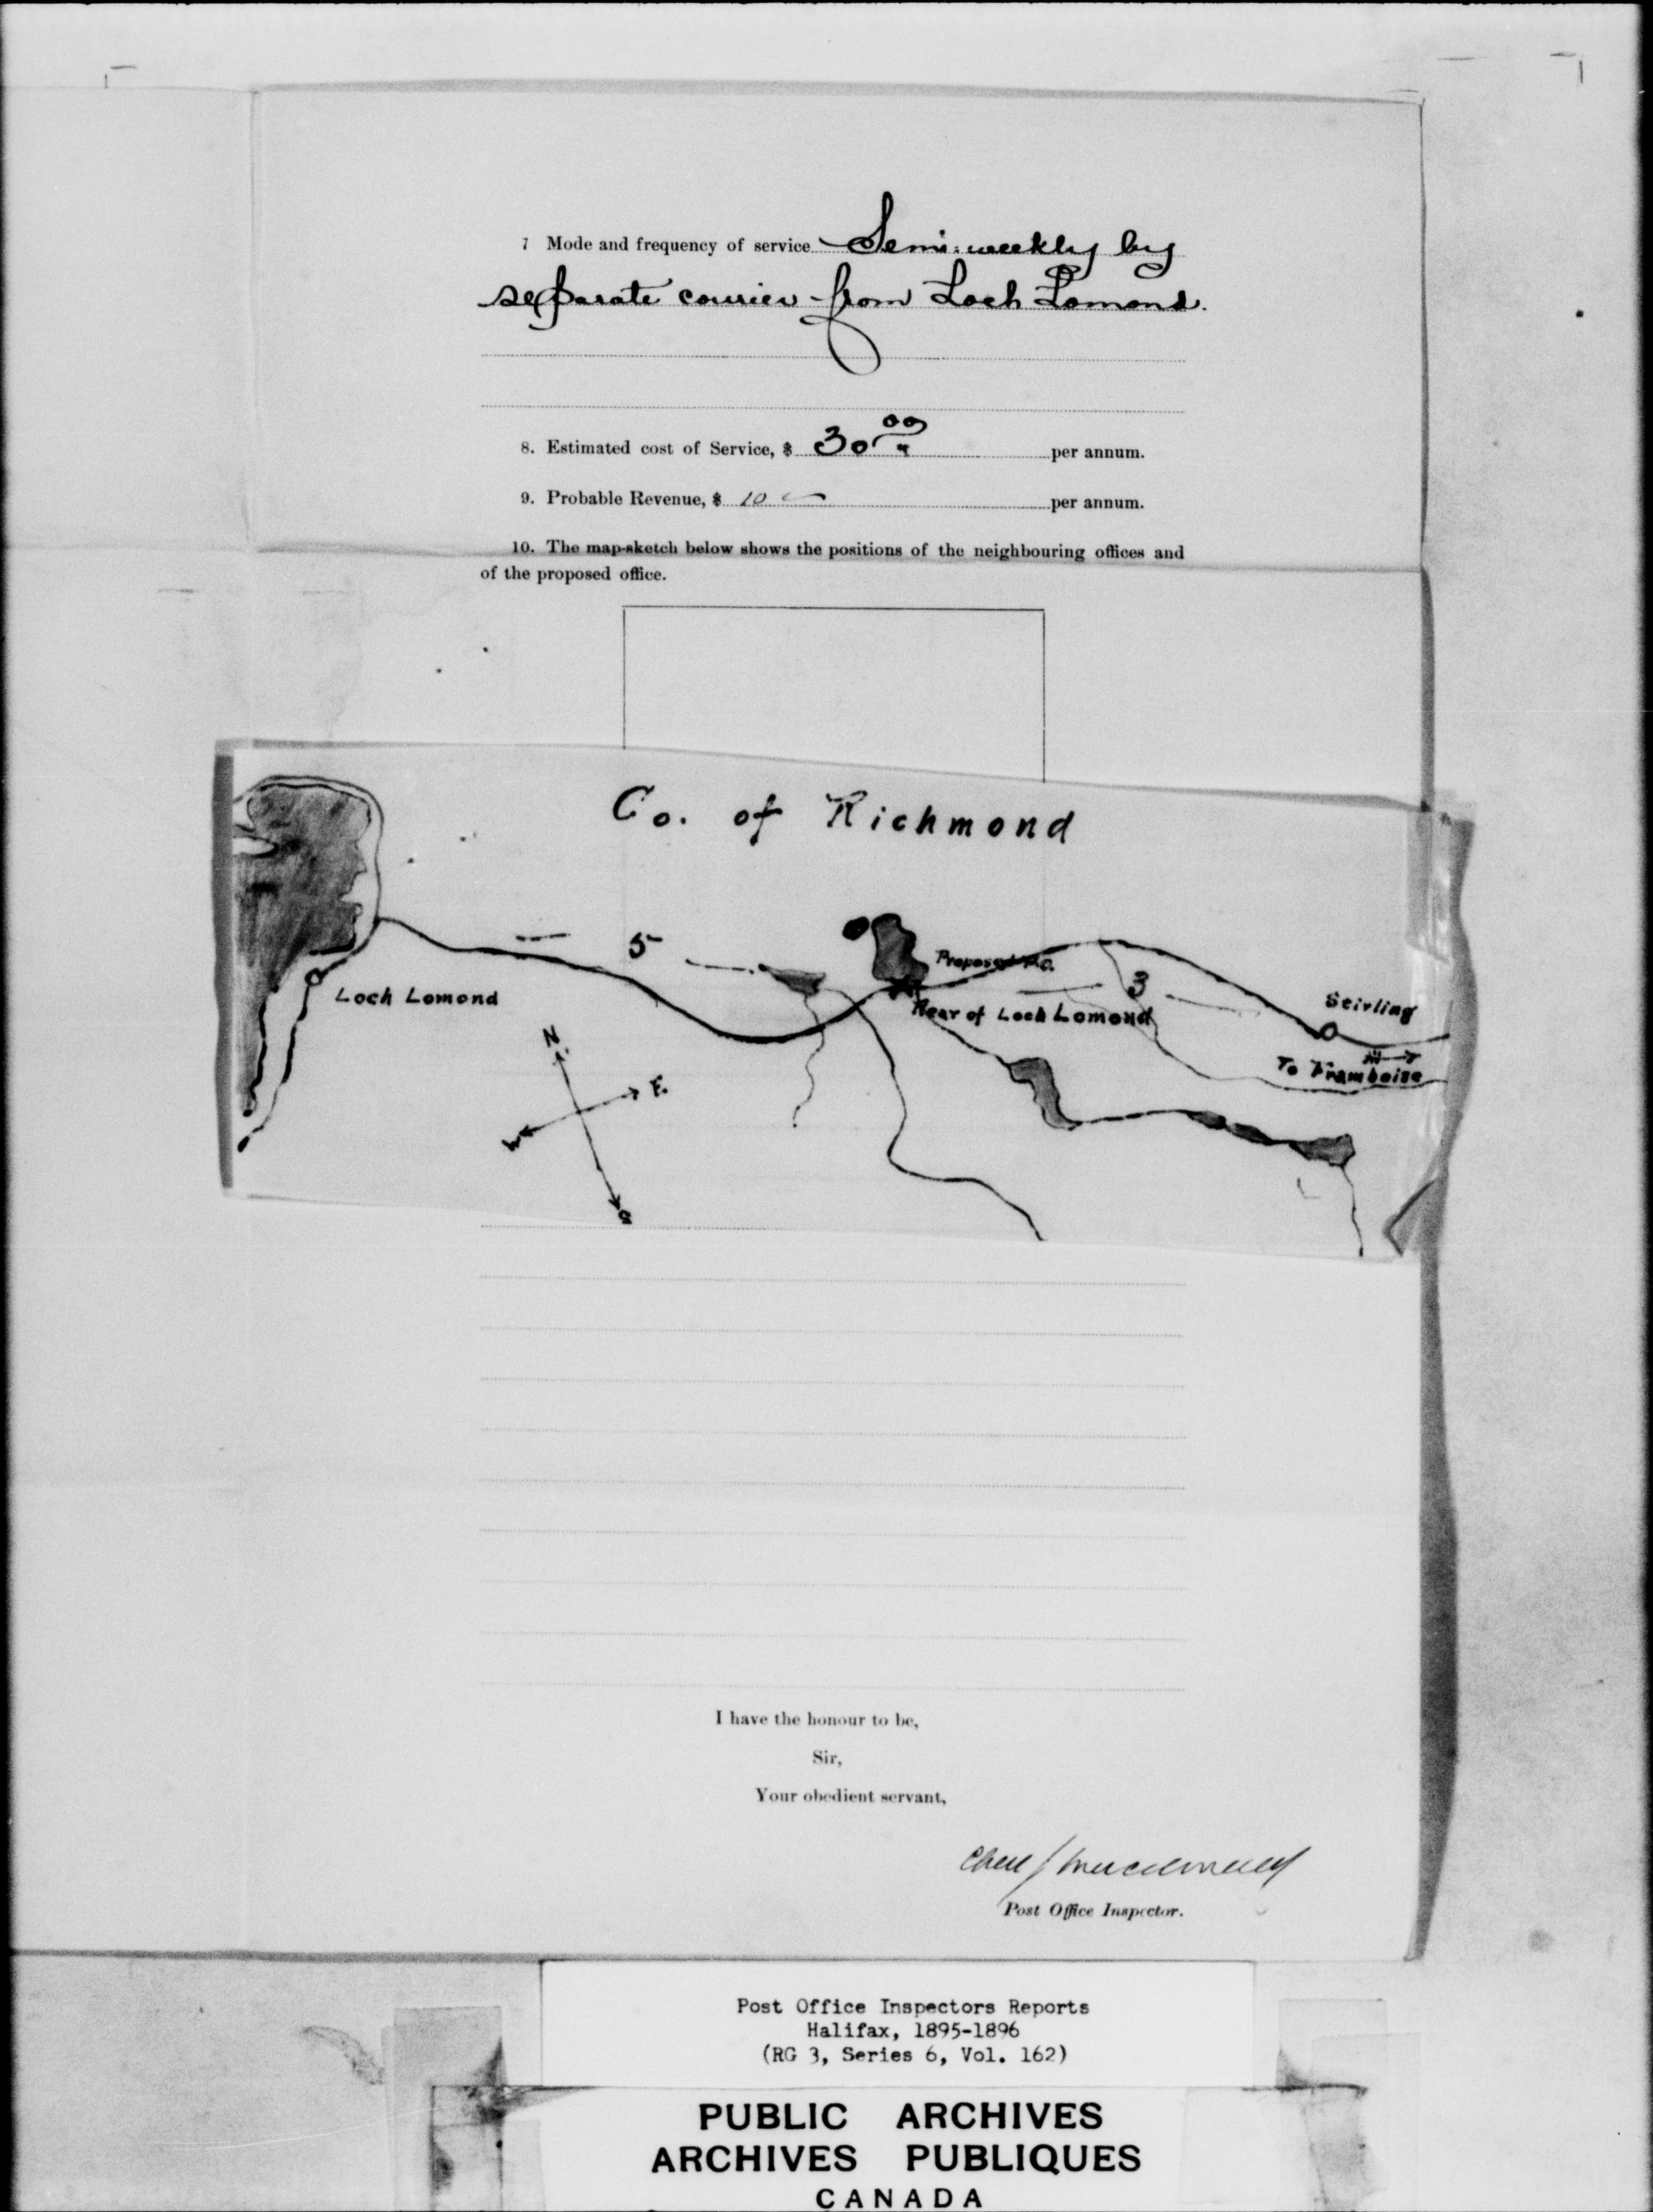 7 Mode and frequency of service Semi-weekly by
separate courier from Loch Lomond.
8. Estimated cost of Service, $ 30 00 per annum.
9. Probable Revenue, $ 10 per annum.
10. The map-sketch below shows the positions of the neighbouring offices and
of the proposed office.
Co. of Richmond
5
Proposed P.O.
3
Loch Lomond
Rear of Loch Lomond
Stirling
N.
To Framboise
E.
W
S
I have the honour to be,
Sir,
Your obedient servant,
Post Office Inspector.
Post Office Inspectors Reports
Halifax, 1895-1896
(RG 3, Series 6, Vol. 162)
PUBLIC ARCHIVES
ARCHIVES PUBLIQUES
CANADA